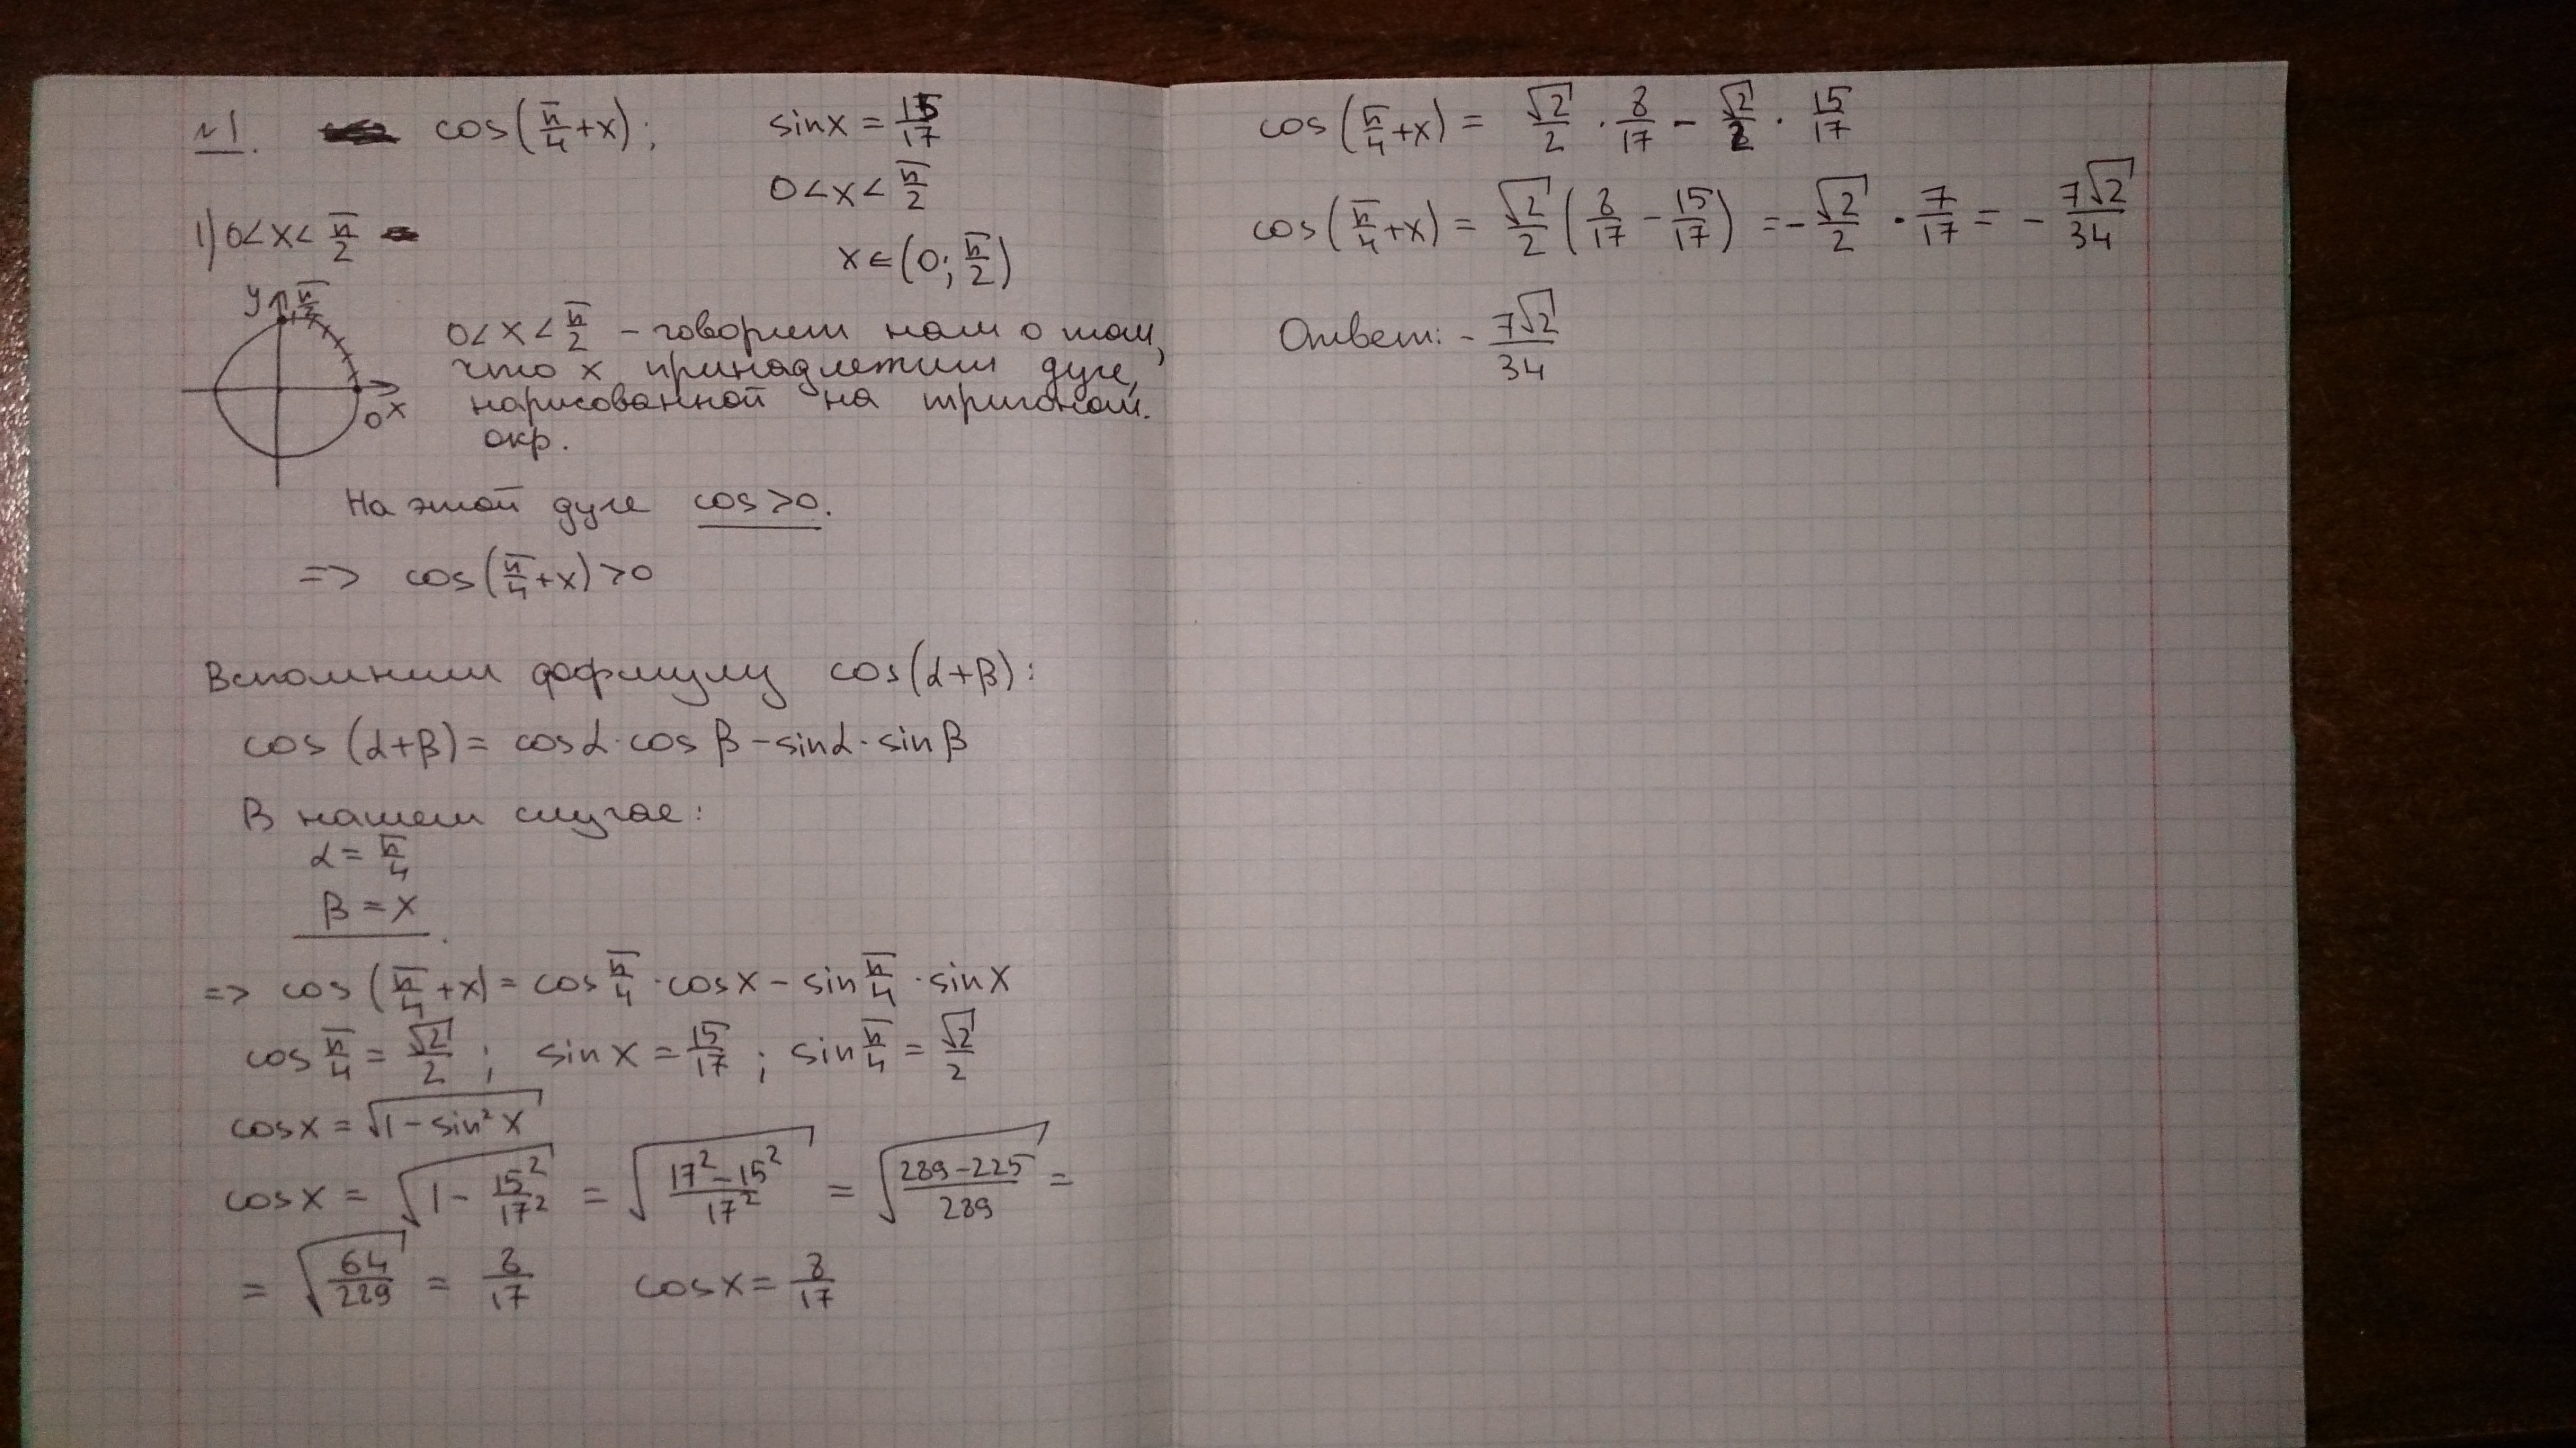 №1. cos(π/4+x); sinx = 15/17
0<x<π/2
1) 0<x<π/2
x∈(0; π/2)
y π/2
0 x
0<x<π/2 – говорит нам о том,
что x принадлежит дуге,
нарисованной на тригоном.
окр.
На этой дуге cos>0.
=> cos(π/4+x)>0
Вспомним формулу cos(α+β):
cos(α+β) = cosα·cosβ-sinα·sinβ
В нашем случае:
α = π/4
β = x.
=> cos(π/4+x) = cosπ/4·cosx - sinπ/4·sinx
cosπ/4 = √2/2; sinx = 15/17; sinπ/4 = √2/2
cosx = √(1-sin²x)
cosx = √(1 - 15²/17²) = √((17²-15²)/17²) = √((289-225)/289) =
= √(64/289) = 8/17 cosx = 8/17
cos(π/4+x) = √2/2 · 8/17 - √2/2 · 15/17
cos(π/4+x) = √2/2(8/17 - 15/17) = -√2/2 · 7/17 = -7√2/34
Ответ: -7√2/34